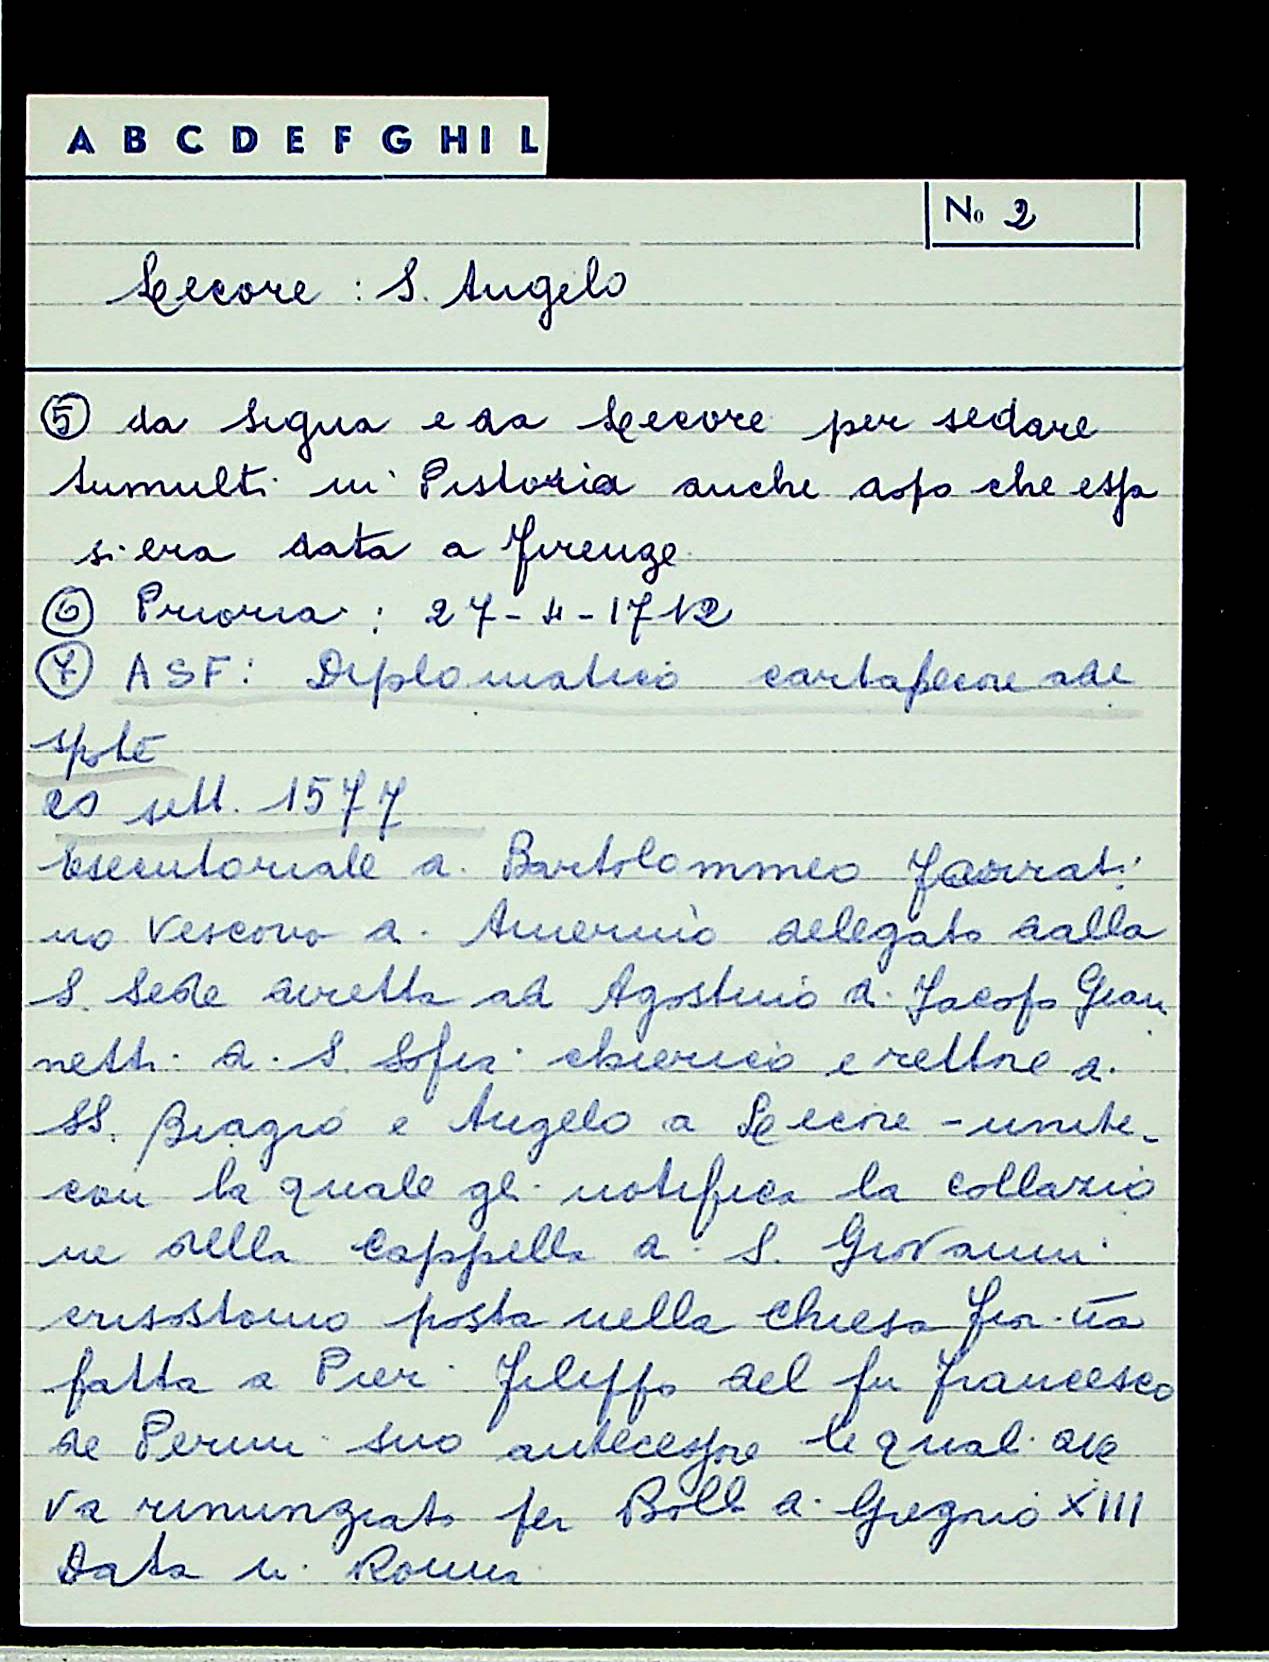 A B C D E F G H I L
No 2
Lecore : S. Angelo
⑤ da Signa e da Lecore per sedare
tumulti in Pistoia anche dopo che essa
si era data a Firenze
⑥ Prioria : 27-4-1712
⑦ ASF: Diplomatico cartapecore
20 sett. 1577
Esecutoriale di Bartolommeo Farrati
no Vescovo di Amerino delegato dalla
S. Sede diretta ad Agostino di Jacopo Gian
netti di S. Sofia chierico e rettore di
SS. Biagio e Angelo a Lecore - unite -
con la quale gli notifica la collazio
ne della Cappella di S. Giovanni
crisostomo posta nella Chiesa fior.na
fatta a Pier Filippo del fu Francesco
de Perini suo antecessore le quali ave
va rinunziato per Bolla di Gregorio XIII
Data in Roma